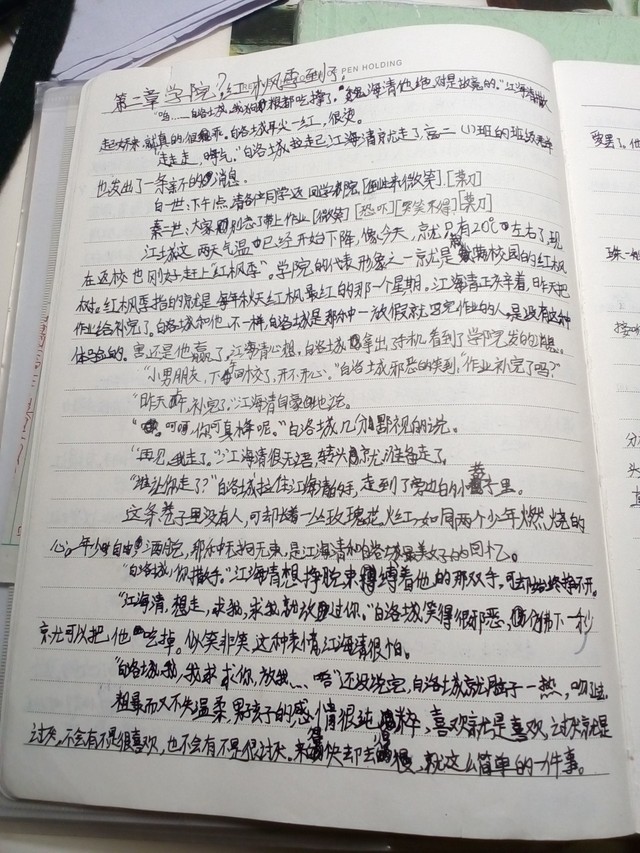 PEN HOLDING
第二章 学院?红枫季到了。
"唔……白洛城,我 根都吃撑了。" 海清他绝对是故意的。"江海清
起 来 就真的很 。白洛城耳火一红,很烫。
走走走,晦气。"白洛城拉走江海清就走了高二(1)班的班级
也发出了一条 的消息。
白一世:下午 点,请各位同学返回学院[ 微笑].[菜刀]
秦一世:大家别忘了带上作业[微笑][恐吓][哭笑不得][菜刀]
江城这两天气温已经开始下降,像今天,就只有20℃左右了,现
在返校也刚好赶上"红枫季"。学院的代表形象之一就是 满校园的红枫
树。红枫季指的就是每年秋天红枫最红的那一个星期。江海清正庆幸着,昨天把
作业给补完了。白洛城和他不一样,白洛城是那种一放假就写完作业的人,是没有这种
体验的,害还是他赢了,江海清心想,白洛城拿出手机看到了学院发的消息。
"小男朋友,下午回校了,开不开心。"白洛城邪恶的笑到,"作业补完了吗?"
"昨天 ,补完了。"江海清自豪地说。
" 呵呵,你可真棒呢。"白洛城几分鄙视的说。
"再见,我走了。"江海清很无语,转头就准备走了。
"谁让你走了?"白洛城拉住江海清的手,走到了旁边的小巷子里。
这条巷子里没有人,可却长着一丛玫瑰花,火红,如同两个少年燃烧的
心,年少自由洒脱,那种无拘无束,是江海清和白洛城最美好的回忆。
"白洛城,你撒手。"江海清想挣脱束缚着他的那双手,可却始终挣不开。
"江海清,想走,求我,求我就放过你。"白洛城笑得很邪恶,仿佛下一秒
就可以把他吃掉。似笑非笑这种表情,江海清很怕。
"白洛城,我,我求求你,放我……唔"还没说完,白洛城就 子一热,吻了过
粗暴而又不失温柔,男孩子的感情很纯粹,喜欢就是喜欢,讨厌就是
讨厌,不会有不是很喜欢,也不会有不是很讨厌。来得快却去得慢,就这么简单的一件事。